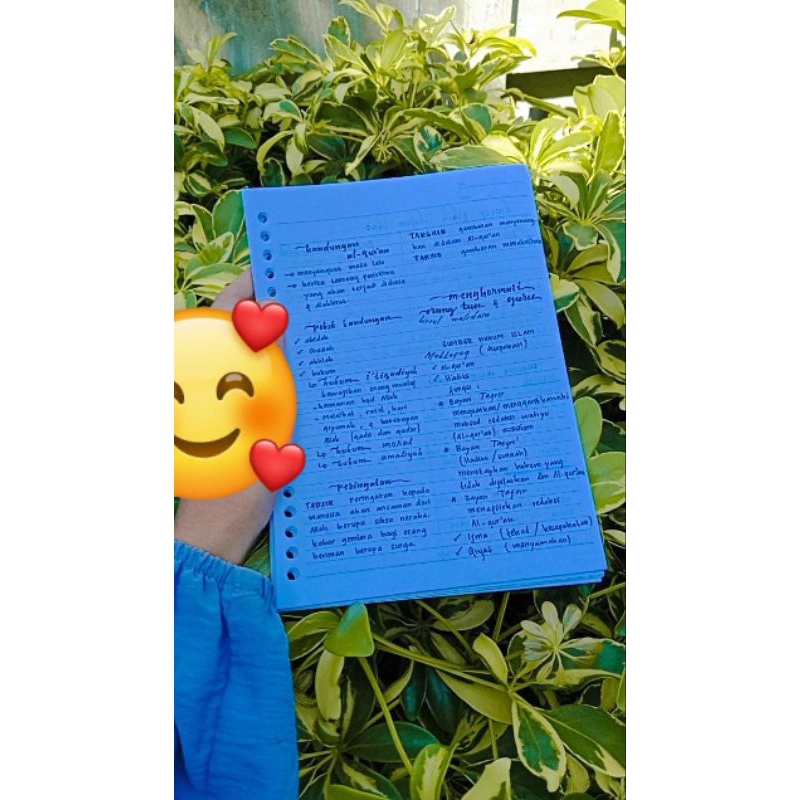 kandungan
al-Qur'an
→ menyangkut masa lalu
→ berita tentang peristiwa
yang akan terjadi didunia
& diakhirat
Pokok kandungan
✓ akidah
✓ ibadah
✓ akhlak
✓ hukum
↳ hukum i'tiqadiyah
kewajiban orang mualaf
- keimanan kpd Allah
- malaikat, rasul, hari
qiyamah, & ketetapan
Allah (qada dan qadar)
↳ hukum moral
↳ hukum amaliyah
Peringatan
peringatan kepada
manusia akan ancaman dari
Allah berupa siksa neraka.
kabar gembira bagi orang
beriman berupa surga.
TARGHIB gambaran menyenang-
kan didalam Al-qur'an
TARHIB gambaran
menghormati
orang tua & guru
birrul walidain
SUMBER HUKUM ISLAM
(disepakati)
✓ Al-qur'an
✓ Hadis
fungsi :
* Bayan Taqrir
maksud redaksi wahyu
(Al-qur'an)
* Bayan Tasyri'
(Hadis / sunnah)
menetapkan hukum yang
tidak dijelaskan dlm Al-qur'an
* Bayan Tafsir
menafsirkan redaksi
Al-qur'an.
✓ Ijma (/ kesepakatan)
✓ Qiyas (menyamakan)